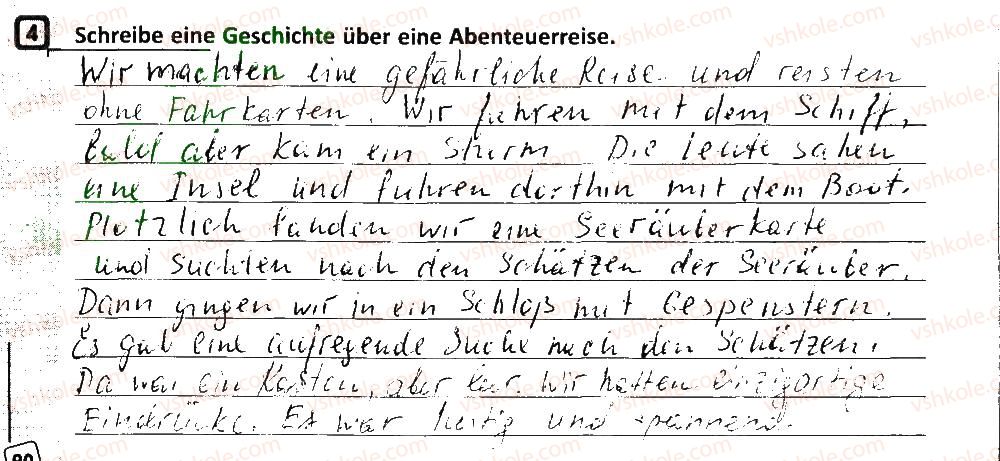 4 Schreibe eine Geschichte über eine Abenteuerreise.
Wir machten eine gefährliche Reise und reisten
ohne Fahrkarten. Wir fuhren mit dem Schiff,
Bald aber kam ein Sturm Die Leute sahen
eine Insel und fuhren dorthin mit dem Boot.
Plotzlich fanden wir eine Seeräuberkarte
und suchten nach den Schätzen der Seeräuber.
Dann gingen wir in ein Schloß mit Gespenstern.
Es gab eine aufregende Suche nach den Schätzen.
Da war ein Kasten, aber leer. Wir hatten einzigartige
Eindrücke. Es war und spannend.